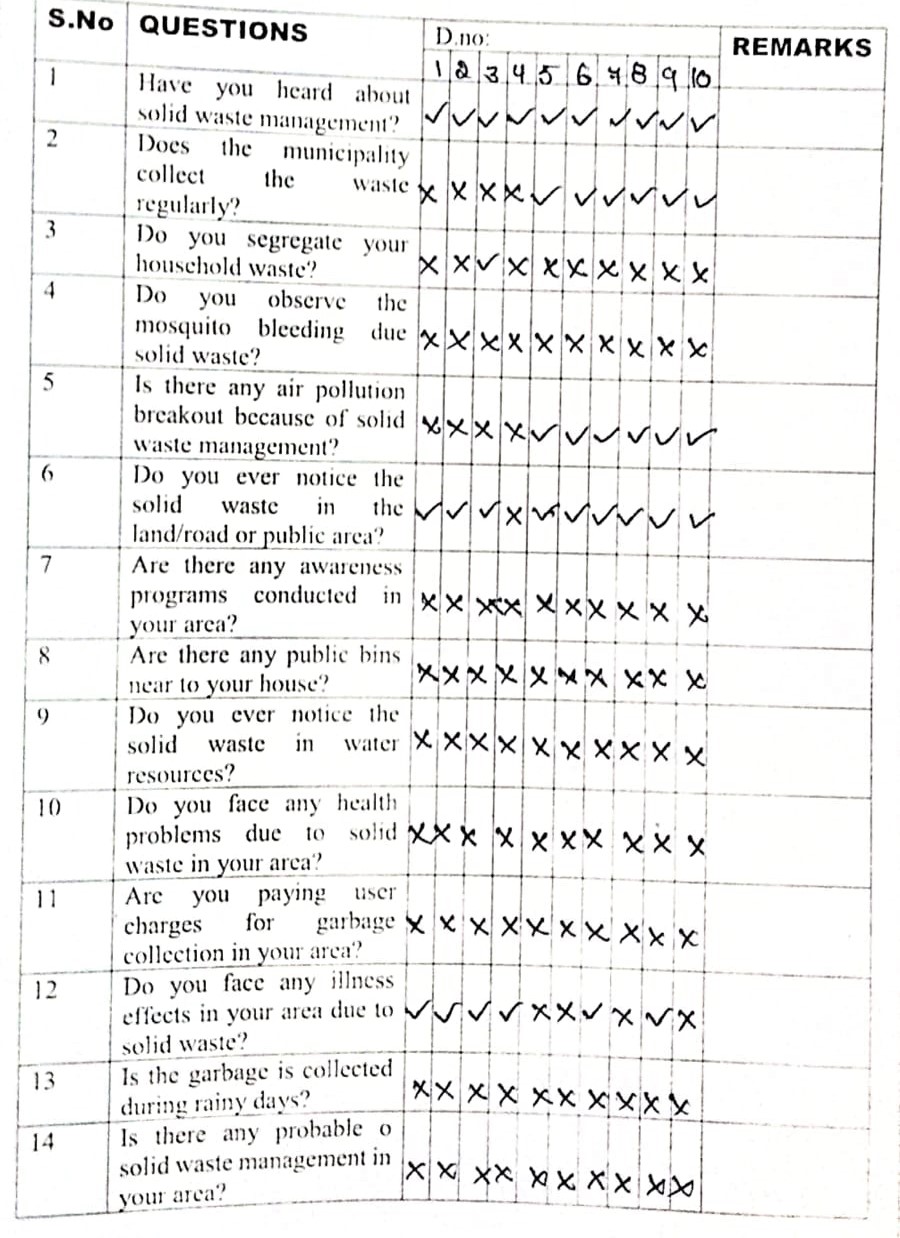 S.No QUESTIONS D.no: REMARKS
1 2 3 4 5 6 7 8 9 10
1 Have you heard about
solid waste management? ✓ ✓ ✓ ✓ ✓ ✓ ✓ ✓ ✓ ✓
2 Does the municipality
collect the waste
regularly? x x x x ✓ ✓ ✓ ✓ ✓ ✓
3 Do you segregate your
household waste? x x ✓ x x x x x x x
4 Do you observe the
mosquito bleeding due
solid waste? x x x x x x x x x x
5 Is there any air pollution
breakout because of solid
waste management? x x x x ✓ ✓ ✓ ✓ ✓ ✓
6 Do you ever notice the
solid waste in the
land/road or public area? ✓ ✓ ✓ x ✓ ✓ ✓ ✓ ✓ ✓
7 Are there any awareness
programs conducted in
your area? x x x x x x x x x x
8 Are there any public bins
near to your house? x x x x x x x x x x
9 Do you ever notice the
solid waste in water
resources? x x x x x x x x x x
10 Do you face any health
problems due to solid
waste in your area? x x x x x x x x x x
11 Are you paying user
charges for garbage
collection in your area? x x x x x x x x x x
12 Do you face any illness
effects in your area due to
solid waste? ✓ ✓ ✓ ✓ x x ✓ x ✓ x
13 Is the garbage is collected
during rainy days? x x x x x x x x x x
14 Is there any probable o
solid waste management in
your area? x x x x x x x x x x